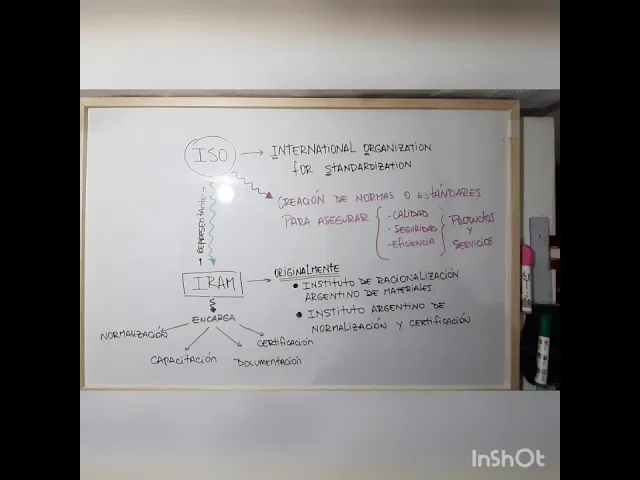 ISO → INTERNATIONAL ORGANIZATION
FOR STANDARDIZATION
CREACIÓN DE NORMAS O ESTÁNDARES
PARA ASEGURAR
- CALIDAD
- SEGURIDAD
- EFICIENCIA
PRODUCTOS
Y
SERVICIOS
REPRESENTANTE
IRAM
ORIGINALMENTE
• INSTITUTO DE RACIONALIZACIÓN
ARGENTINO DE MATERIALES.
• INSTITUTO ARGENTINO DE
NORMALIZACIÓN Y CERTIFICACIÓN
SE
ENCARGA
NORMALIZACIÓN
CAPACITACIÓN
DOCUMENTACIÓN
CERTIFICACIÓN
InShOt